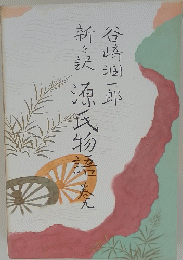 谷崎潤一郎
新々訳 源氏物語 巻九